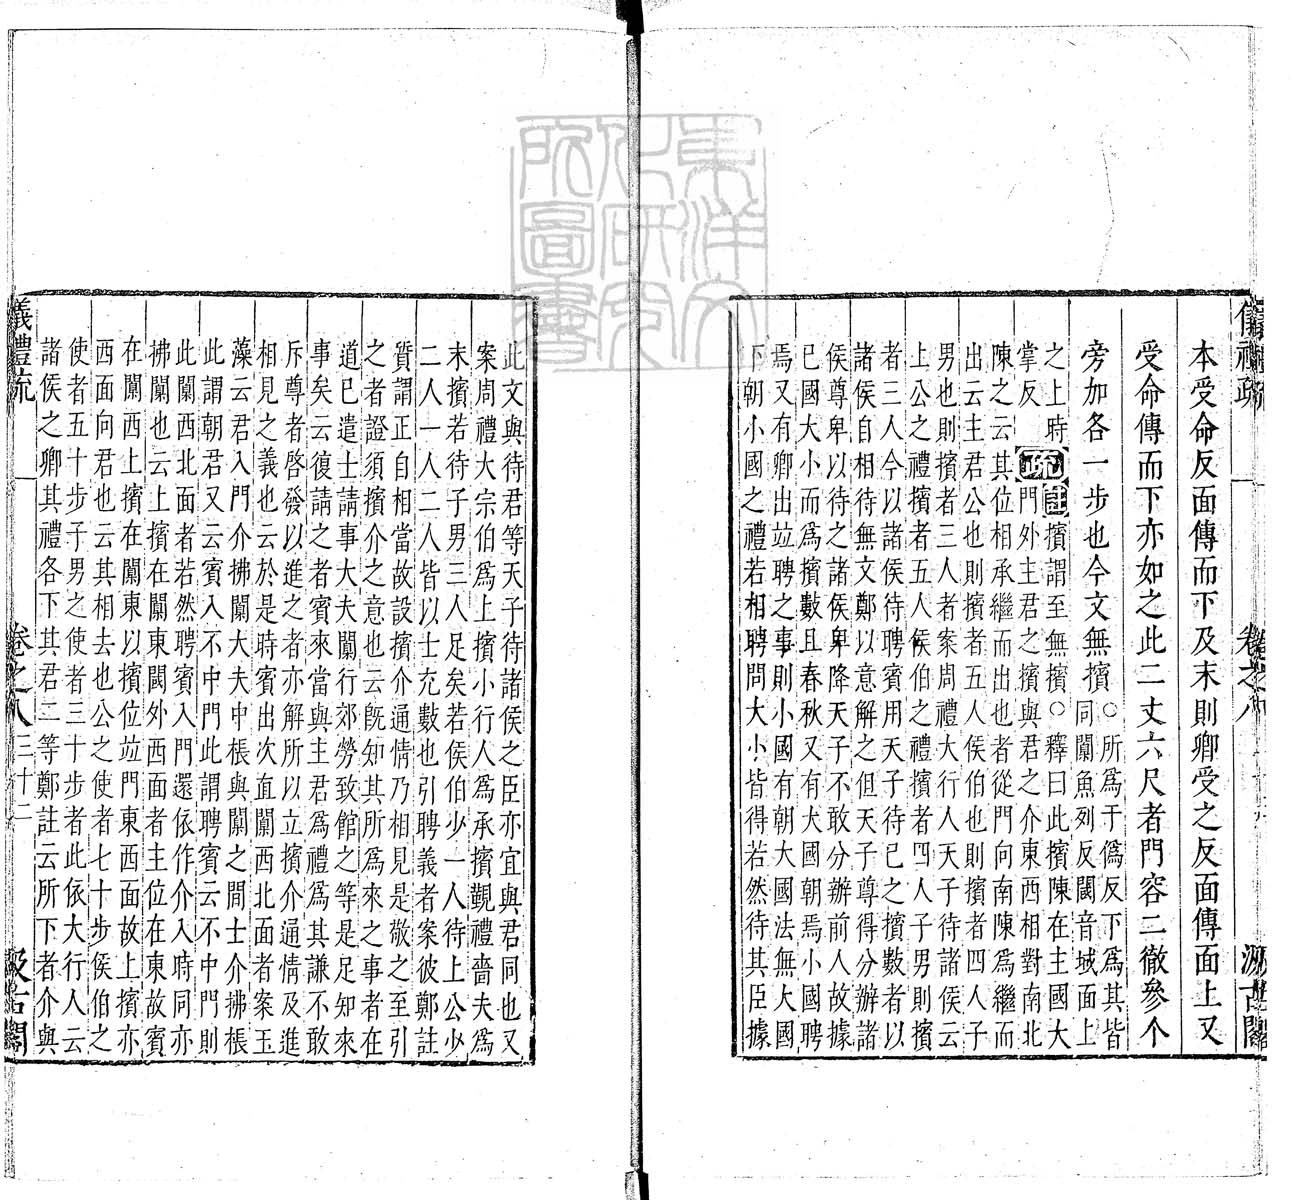 本受命反面傳而下及末則卿受之反面傳面上又
受命傳而下亦如之此二丈六尺者門容二徹參个
旁加各一步也今文無擯○所爲于僞反下爲其皆
同闑魚列反閾音域面上
之上時
掌反
疏註擯謂至無擯○釋曰此擯陳在主國大
門外主君之擯與君之介東西相對南北
陳之云其位相承繼而出也者從門向南陳爲繼而
出云主君公也則擯者五人侯伯也則擯者四人子
男也則擯者三人者案周禮大行人天子待諸侯云
上公之禮擯者五人侯伯之禮擯者四人子男則擯
者三人今以諸侯待聘賓用天子待己之擯數者以
諸侯自相待無文鄭以意解之但天子尊得分辨諸
侯尊卑以待之諸侯卑降天子不敢分辨前人故據
己國大小而爲擯數且春秋又有大國朝焉小國聘
焉又有卿出竝聘之事則小國有朝大國法無大國
下朝小國之禮若相聘問大小皆得若然待其臣據
此文與待君等天子待諸侯之臣亦宜與君同也又
案周禮大宗伯爲上擯小行人爲承擯覲禮嗇夫爲
末擯若待子男三人足矣若侯伯少一人待上公少
二人一人二人皆以士充數也引聘義者案彼鄭註
質謂正自相當故設擯介通情乃相見是敬之至引
之者證須擯介之意也云旣知其所爲來之事者在
道已遣士請事大夫闑行郊勞致館之等是足知來
事矣云復請之者賓來當與主君爲禮爲其謙不敢
斥尊者啓發以進之者亦解所以立擯介通情及進
相見之義也云於是時賓出次直闑西北面者案玉
藻云君入門介拂闑大夫中棖與闑之間士介拂棖
此謂朝君又云賓入不中門此謂聘賓云不中門則
此闑西北面者若然聘賓入門還依作介入時同亦
拂闑也云上擯在闑東閾外西面者主位在東故賓
在闑西上擯在闑東以擯位竝門東西面故上擯亦
西面向君也云其相去也公之使者七十步侯伯之
使者五十步子男之使者三十步者此依大行人云
諸侯之卿其禮各下其君二等鄭註云所下者介與
儀禮疏 卷之八 三十二 汲古閣